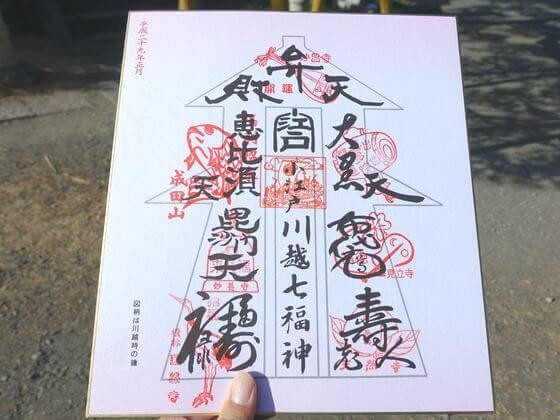 平成二十九年正月
弁財天
開運
大黒天
恵比須天
成田山
小江戸川越七福神
毘沙門天
妙善寺
布袋尊
見立寺
寿老人
福禄寿
図柄は川越時の鐘